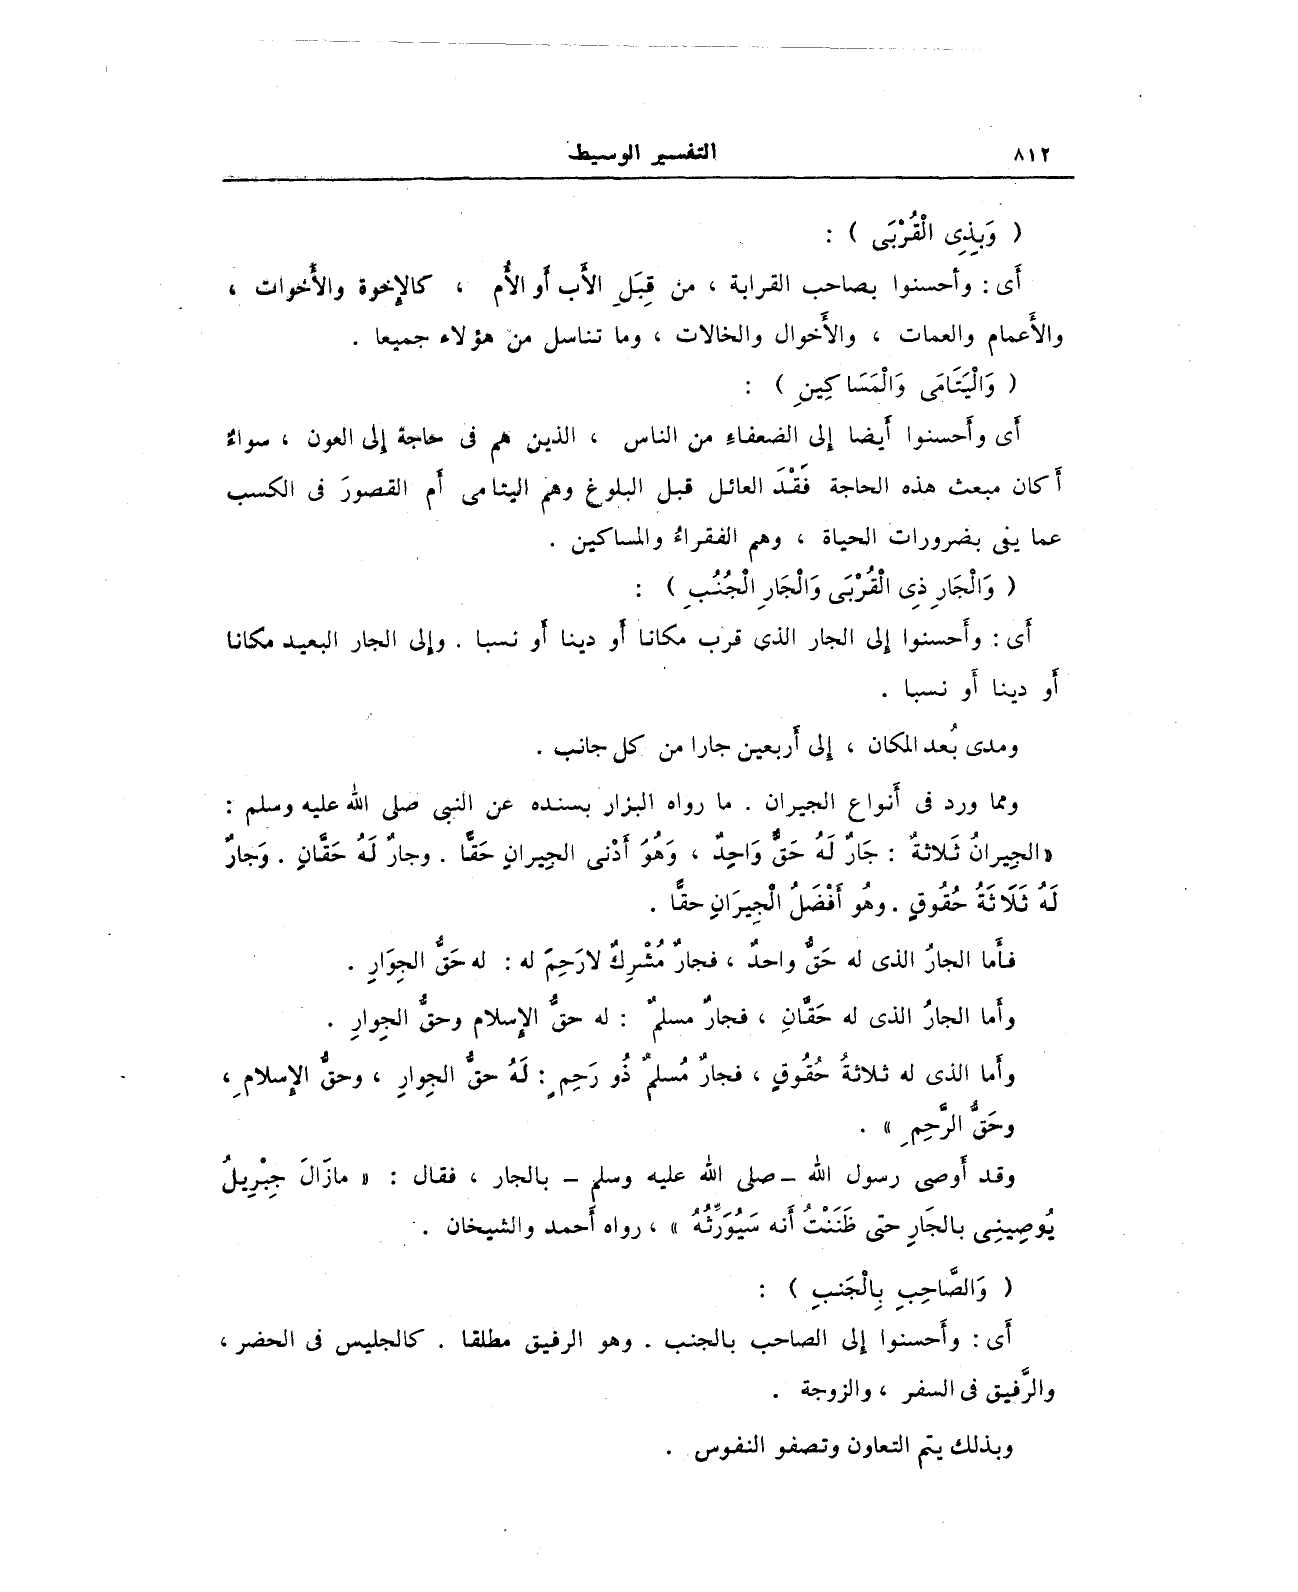 ٨١٢ التفسير الوسيط
( وَبِذِى الْقُرْبَى ) :
أَى : وأحسنوا بصاحب القرابة ، من قِبَلِ الأَب أَو الأُم ، كالإِخوة والأَخوات ،
والأَعمام والعمات ، والأَخوال والخالات ، وما تناسل من هؤلاء جميعا .
( وَالْيَتَامَى وَالْمَسَاكِينِ ) :
أَى وأَحسنوا أَيضا إِلى الضعفاءِ من الناس ، الذين هم فى حاجة إِلى العون ، سواءٌ
أَكان مبعث هذه الحاجة فَقْدَ العائل قبل البلوغ وهم اليتامى أَم القصورَ فى الكسب
عما يفى بضرورات الحياة ، وهم الفقراءُ والمساكين .
( وَالْجَارِ ذِى الْقُرْبَى وَالْجَارِ الْجُنُبِ ) :
أَى : وأَحسنوا إِلى الجار الذي قرب مكانا أَو دينا أَو نسبا . وإِلى الجار البعيد مكانا
أَو دينا أَو نسبا .
ومدى بُعد المكان ، إِلى أَربعين جارا من كل جانب .
ومما ورد فى أَنواع الجيران . ما رواه البزار بسنده عن النبى صلى الله عليه وسلم :
«الجِيرانُ ثَلاثةٌ : جَارٌ لَهُ حَقٌّ وَاحِدٌ ، وَهُوَ أَدْنى الجِيرانِ حَقًّا . وجارٌ لَهُ حَقَّانِ . وَجارٌ
لَهُ ثَلَاثَةُ حُقُوقٍ . وهُو أَفْضَلُ الْجِيرَانِ حقًّا .
فأَما الجارُ الذى له حَقٌّ واحدٌ ، فجارٌ مُشْرِكٌ لارَحِمَ له : له حَقُّ الجِوَارِ .
وأَما الجارُ الذى له حَقَّانِ ، فجارٌ مسلمٌ : له حقُّ الإِسلام وحقُّ الجِوارِ .
وأَما الذى له ثلاثةُ حُقُوقٍ ، فجارٌ مُسلمٌ ذُو رَحِمٍ : لَهُ حقُّ الجِوارِ ، وحقُّ الإِسلامِ ،
وحَقُّ الرَّحِمِ » .
وقد أَوصى رسول الله ــ صلى الله عليه وسلم ــ بالجار ، فقال : « مازَالَ جِبْرِيلُ
يُوصِينِى بالجَارِ حتى ظَنَنْتُ أَنه سَيُوَرِّثُهُ » ، رواه أَحمد والشيخان .
( وَالصَّاحِبِ بِالْجَنبِ ) :
أَى : وأَحسنوا إِلى الصاحب بالجنب . وهو الرفيق مطلقا . كالجليس فى الحضر ،
والرَّفيق فى السفر ، والزوجة .
وبذلك يتم التعاون وتصفو النفوس .